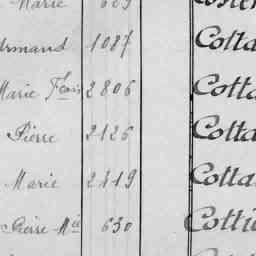 Marie
Armand 1087 Cotta
Marie Fçois 2806 Cotta
Pierre 2126 Cotta
Marie 2419 Cotta
Pierre Mie 630 Cotti